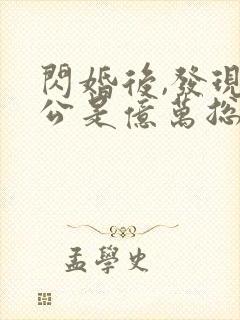 閃婚後,發現
公是億萬總
孟學史